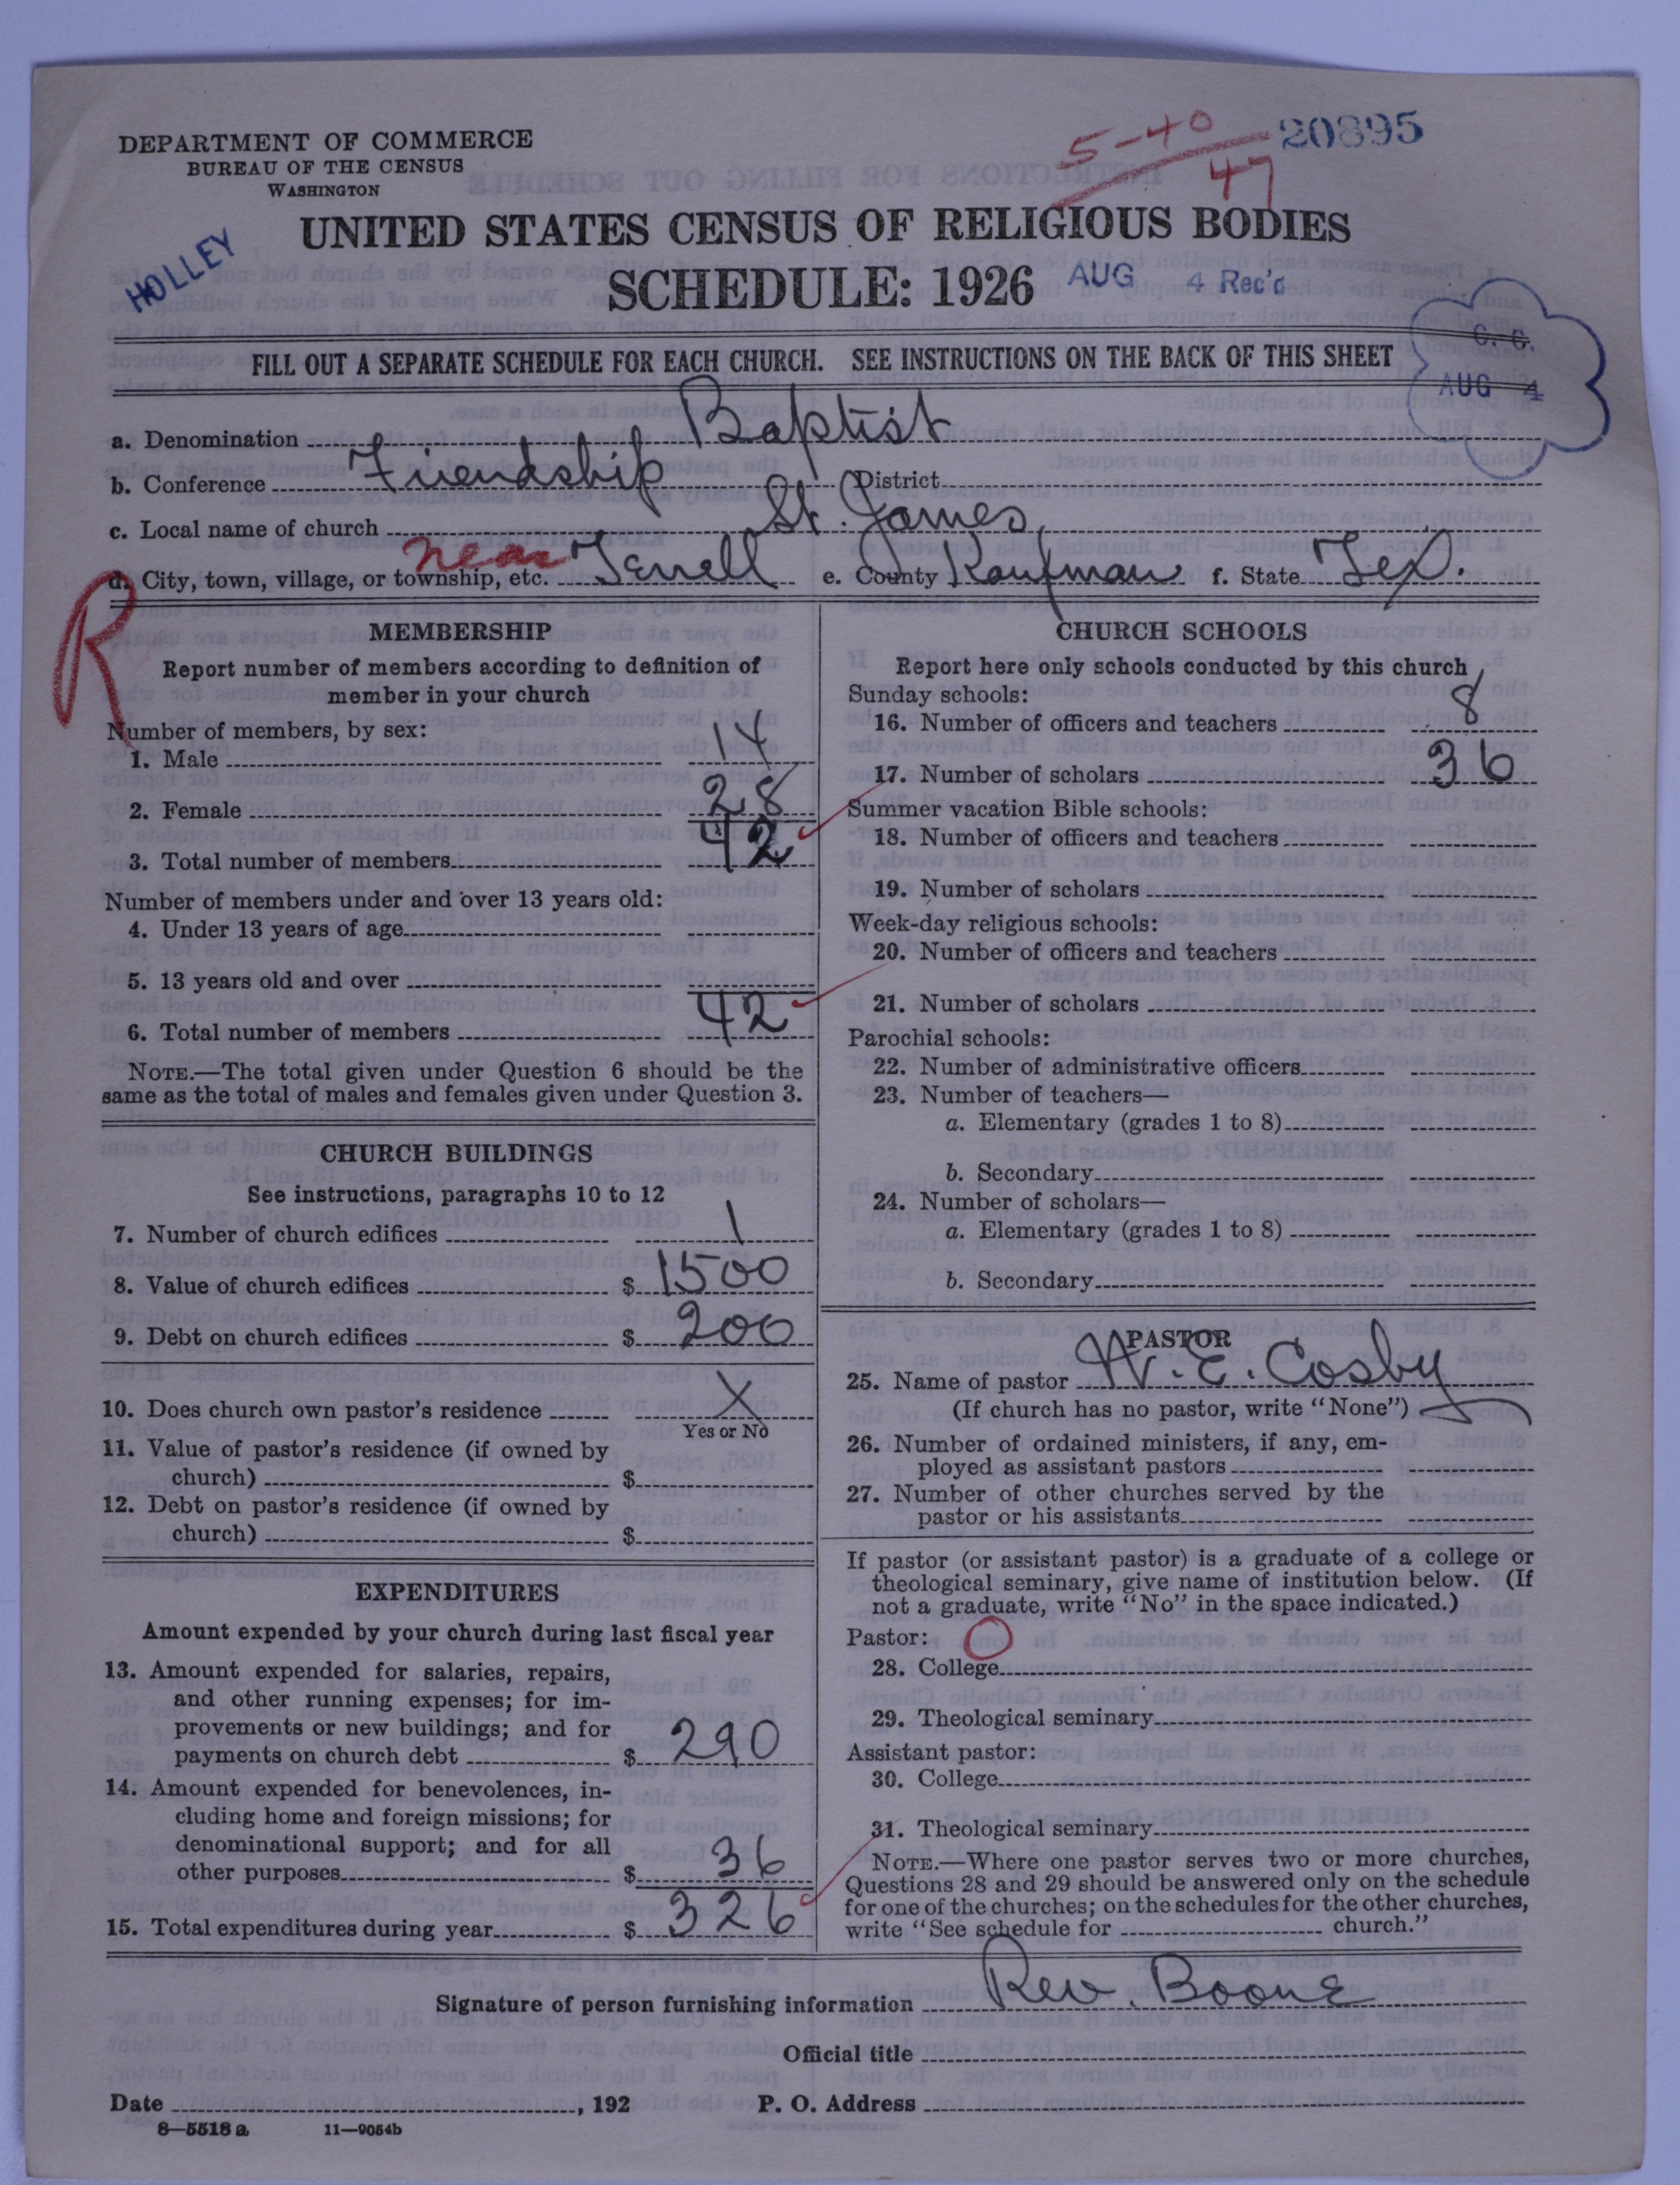 DEPARTMENT OF COMMERCE
BUREAU OF THE CENSUS
WASHINGTON
5-40
47
20895
UNITED STATES CENSUS OF RELIGIOUS BODIES
HOLLEY
SCHEDULE: 1926
AUG 4 Rec'd
FILL OUT A SEPARATE SCHEDULE FOR EACH CHURCH. SEE INSTRUCTIONS ON THE BACK OF THIS SHEET
C. C.
AUG 4
a. Denomination Baptist
b. Conference Friendship District
c. Local name of church St. James
d. City, town, village, or township, etc. near Terrell e. County Kaufman f. State Tex.
R
MEMBERSHIP
Report number of members according to definition of
member in your church
Number of members, by sex:
1. Male 14
2. Female 28
3. Total number of members 42
Number of members under and over 13 years old:
4. Under 13 years of age
5. 13 years old and over
6. Total number of members 42
NOTE.—The total given under Question 6 should be the
same as the total of males and females given under Question 3.
CHURCH BUILDINGS
See instructions, paragraphs 10 to 12
7. Number of church edifices 1
8. Value of church edifices $ 1500
9. Debt on church edifices $ 200
10. Does church own pastor's residence X
Yes or No
11. Value of pastor's residence (if owned by
church) $
12. Debt on pastor's residence (if owned by
church) $
EXPENDITURES
Amount expended by your church during last fiscal year
13. Amount expended for salaries, repairs,
and other running expenses; for im-
provements or new buildings; and for
payments on church debt $ 290
14. Amount expended for benevolences, in-
cluding home and foreign missions; for
denominational support; and for all
other purposes $ 36
15. Total expenditures during year $ 326
CHURCH SCHOOLS
Report here only schools conducted by this church
Sunday schools:
16. Number of officers and teachers 8
17. Number of scholars 36
Summer vacation Bible schools:
18. Number of officers and teachers
19. Number of scholars
Week-day religious schools:
20. Number of officers and teachers
21. Number of scholars
Parochial schools:
22. Number of administrative officers
23. Number of teachers—
a. Elementary (grades 1 to 8)
b. Secondary
24. Number of scholars—
a. Elementary (grades 1 to 8)
b. Secondary
PASTOR
25. Name of pastor W. E. Cosby
(If church has no pastor, write "None")
26. Number of ordained ministers, if any, em-
ployed as assistant pastors
27. Number of other churches served by the
pastor or his assistants
If pastor (or assistant pastor) is a graduate of a college or
theological seminary, give name of institution below. (If
not a graduate, write "No" in the space indicated.)
Pastor: O
28. College
29. Theological seminary
Assistant pastor:
30. College
31. Theological seminary
NOTE.—Where one pastor serves two or more churches,
Questions 28 and 29 should be answered only on the schedule
for one of the churches; on the schedules for the other churches,
write "See schedule for church."
Signature of person furnishing information Rev. Boone
Official title
Date , 192 P. O. Address
8—5518 a 11—9054b